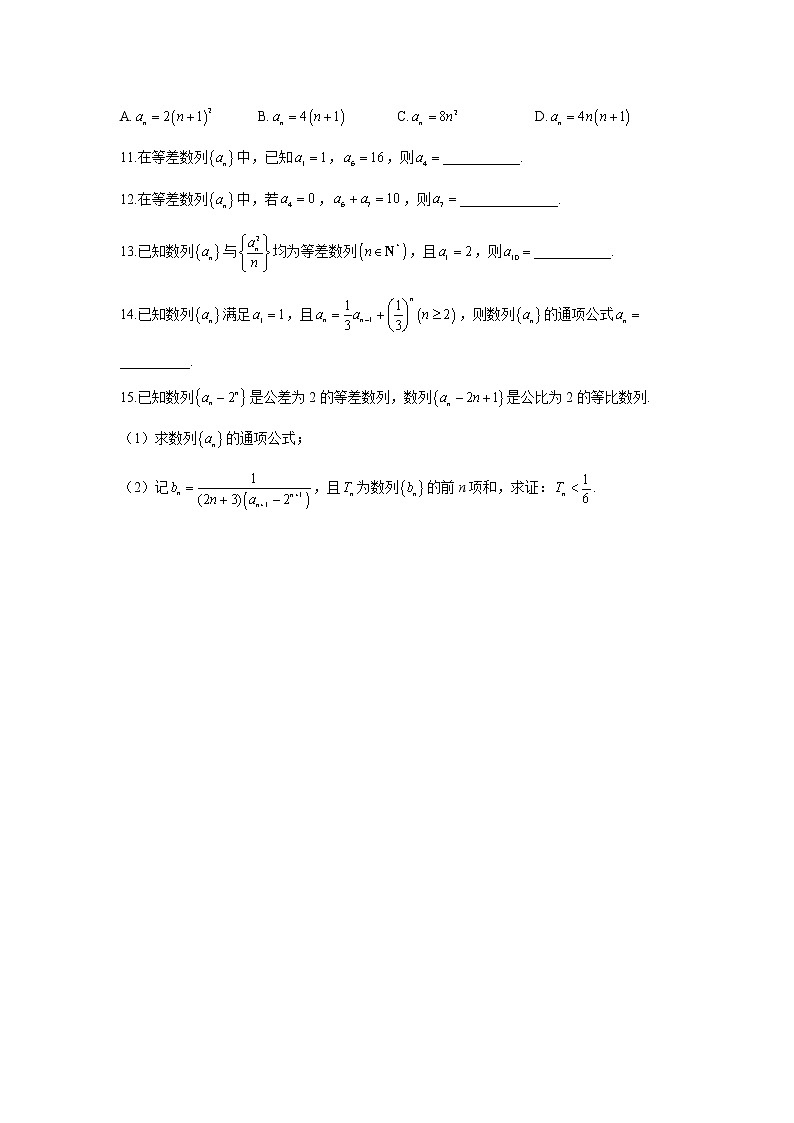 A. $a_n=2(n+1)^2$ B. $a_n=4(n+1)$ C. $a_n=8n^2$ D. $a_n=4n(n+1)$
11.在等差数列$\{a_n\}$中，已知$a_1=1$，$a_6=16$，则$a_4=$___________.
12.在等差数列$\{a_n\}$中，若$a_4=0$，$a_6+a_7=10$，则$a_7=$______________.
13.已知数列$\{a_n\}$与$\left\{\frac{a_n^2}{n}\right\}$均为等差数列$(n\in\mathbf{N}^*)$，且$a_1=2$，则$a_{10}=$___________.
14.已知数列$\{a_n\}$满足$a_1=1$，且$a_n=\frac{1}{3}a_{n-1}+\left(\frac{1}{3}\right)^n(n\geq 2)$，则数列$\{a_n\}$的通项公式$a_n=$
__________.
15.已知数列$\{a_n-2^n\}$是公差为2的等差数列，数列$\{a_n-2n+1\}$是公比为2的等比数列.
（1）求数列$\{a_n\}$的通项公式；
（2）记$b_n=\frac{1}{(2n+3)(a_{n+1}-2^{n+1})}$，且$T_n$为数列$\{b_n\}$的前n项和，求证：$T_n<\frac{1}{6}$.